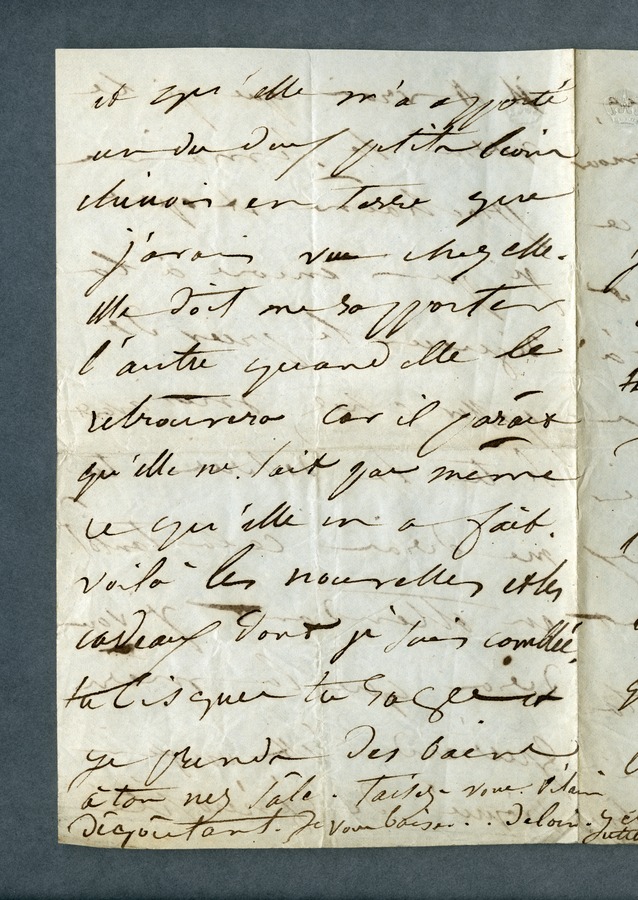 et qu'elle m'a apporté
un des deux petits
chinois en terre que
j'avais vue chez elle.
elle doit me rapporter
l'autre quand elle le
retrouvera car il parait
qu'elle ne sait pas même
ce qu'elle en a fait.
voilà les nouvelles et les
cadeaux dont je suis comblée.
tu
je prends des bains
à ton nez sâle. Taisez vous. Vilain
Dégoutant. Je vous baise.. de loin.